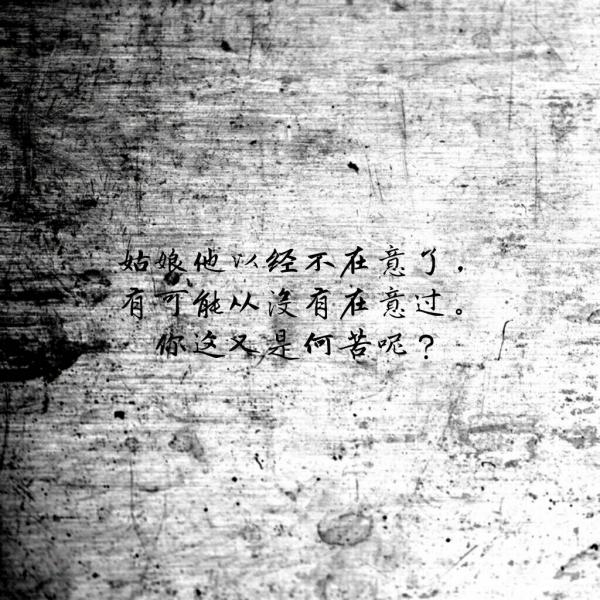 姑娘他以经不在意了，
有可能从没有在意过。
你这又是何苦呢？